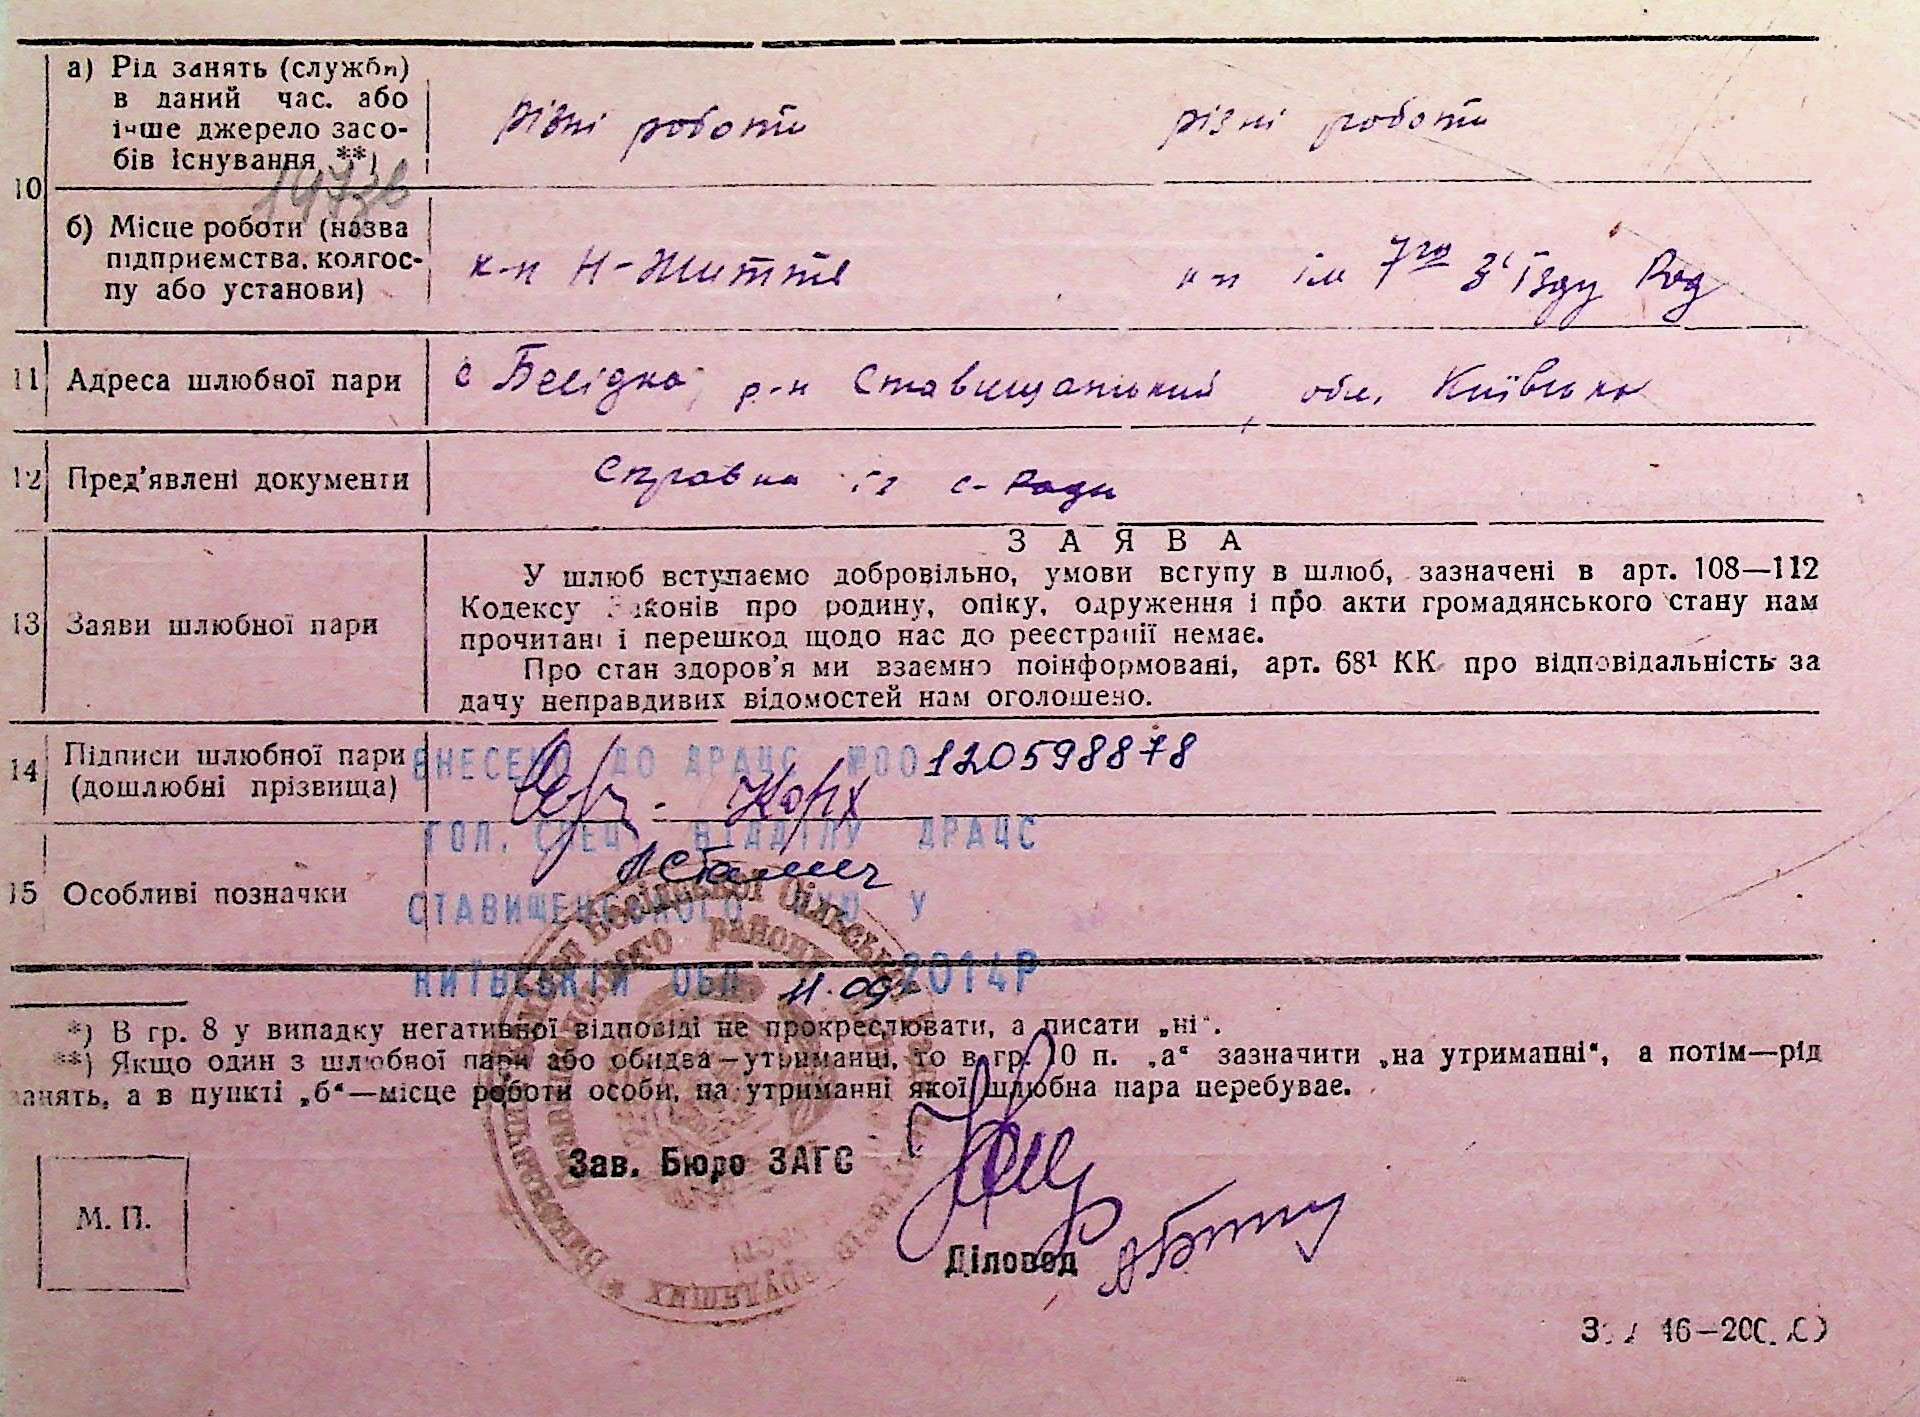 10
а) Рід занять (служби)
в даний час. або
інше джерело засо-
бів існування **)
різні роботи
різні роботи
б) Місце роботи (назва
підприємства, колгос-
пу або установи)
к-п Н-Життя
к-п ім 7го З'їзду Рад
11 Адреса шлюбної пари
с Бесідка, р-н Ставищанський, обл. Київська
12 Пред'явлені документи
Справка із с-Ради
13 Заяви шлюбної пари
ЗАЯВА
У шлюб вступаємо добровільно, умови вступу в шлюб, зазначені в арт. 108—112
Кодексу Законів про родину, опіку, одруження і про акти громадянського стану нам
прочитані і перешкод щодо нас до реєстрації немає.
Про стан здоров'я ми взаємно поінформовані, арт. 68¹ КК про відповідальність за
дачу неправдивих відомостей нам оголошено.
14 Підписи шлюбної пари
(дошлюбні прізвища)
Корх
ВНЕСЕНО ДО ДРАЦС №00120598878
ГОЛ. СПЕЦ. ВІДДІЛУ ДРАЦС
15 Особливі позначки
СТАВИЩЕНСЬКОГО РУЮ У
КИЇВСЬКІЙ ОБЛ 11.09 2014Р
*) В гр. 8 у випадку негативної відповіді не прокреслювати, а писати „ні“.
**) Якщо один з шлюбної пари або обидва—утриманці, то в гр. 10 п. „а“ зазначити „на утриманні“, а потім—рід
занять, а в пункті „б“—місце роботи особи, на утриманні якої шлюбна пара перебуває.
Зав. Бюро ЗАГС
М. П.
Діловод